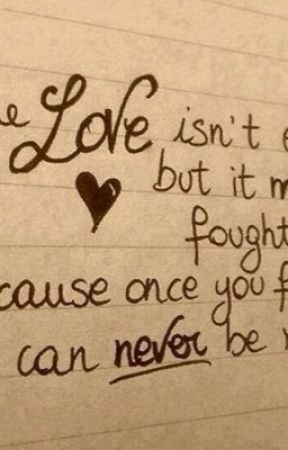 Love isn't
but it
fought
cause once you
can never be